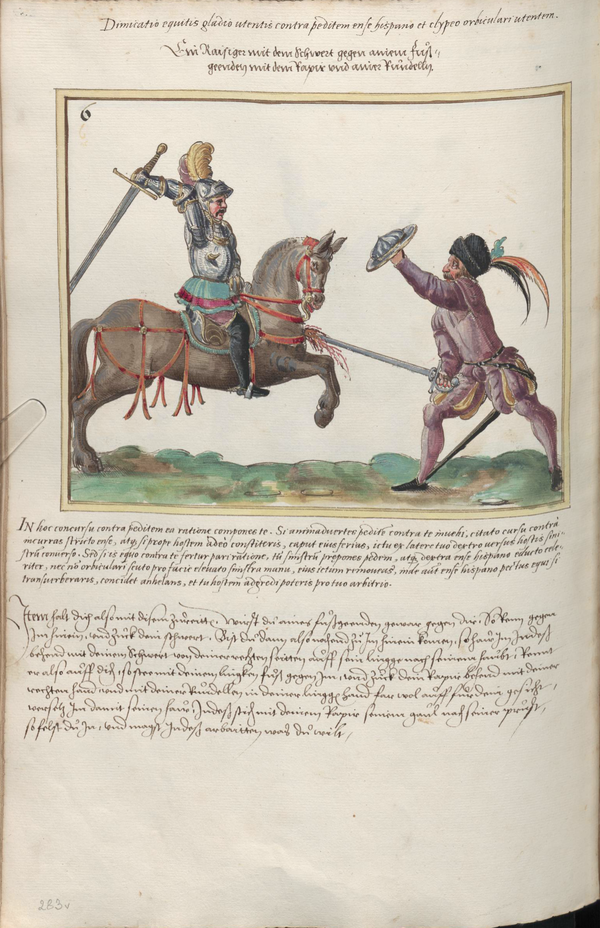 Dimicatio equitis gladio utentis contra peditem ense hispano et clypeo orbiculari utentem.
Ein Raisiger mit dem Schwert gegen ainem fuͦß-
geenden mit dem Rapir vnd ainer Rundelln
6
IN hoc concursu contra peditem ea ratione compones te. Si animaduertes pedite contra te muehi, citato cursu contra
incurras stricto ense, atq si prope hostem adeo constiteris, caput euis ferias, ictu ex latere tuo dextro uersus hostis sini-
strũ conuerso. Sed si is equo contra te fertur pari ratione, tu sinistrũ prepones pedem, atq dextra ense hispano educto cele-
riter, nec nõ orbiculari scuto pro facie eleuato sinistra manu, eius ictum remoueras, inde aũt ense hispano pectus equi si
transuerberaris, concidet anhelans, et tu hostem adgredi poteris pro tuo arbitrio.
Item halt dich also mit disem Zuͦreitte, Wurst du aines fuͦßgeenden gewar gegen dir, So Renn gegen
Im hinein, vnd Zuck dein schwert. Bist du dann also nahend Zuͦ Im hinein komen, so haw Im Indeß
behend mit deinem Schwert von deiner rechten seitten auff sein lingge nach seinem haubt, Rennt
er also auff dich, so stee mit deinem lingken fuͦß gegen Im, vnd Zuck dein Rapir behend mit deiner
rechten hand vnd mit deiner Rundellen in deiner lingge hand far wol auff für dein gesicht,
versetz Im damit seinen haw, Indeß stich mit deinem Rapir seinem gaul nach seiner prust,
so felst du In, vnd magst Indeß arbaitten was du wilt,
283v